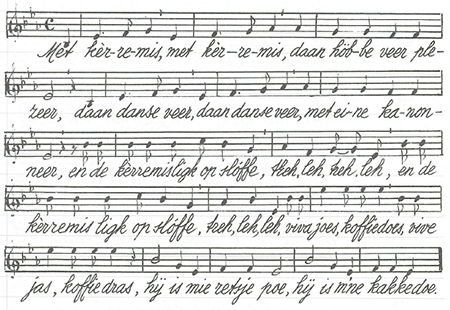 Met kèr-re-mis, met kèr-re-mis, daan höb-be veer ple-
zeer, daan danse veer, daan danse veer, met ei-ne ka-non-
neer, en de kèrremisligk op slóffe, tteh, leh, teh, leh, en de
kèrremis ligk op slóffe, teh, leh, leh, viva joes, koffiedoes, vive
jas, koffie dras, hij is mie retsje poe, hij is m'ne kakkedoe.